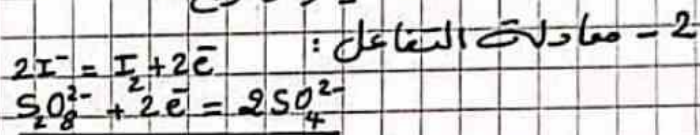 2 - معادلة التفاعل :
2I⁻ = I₂ + 2e̅
S₂O₈²⁻ + 2e̅ = 2SO₄²⁻